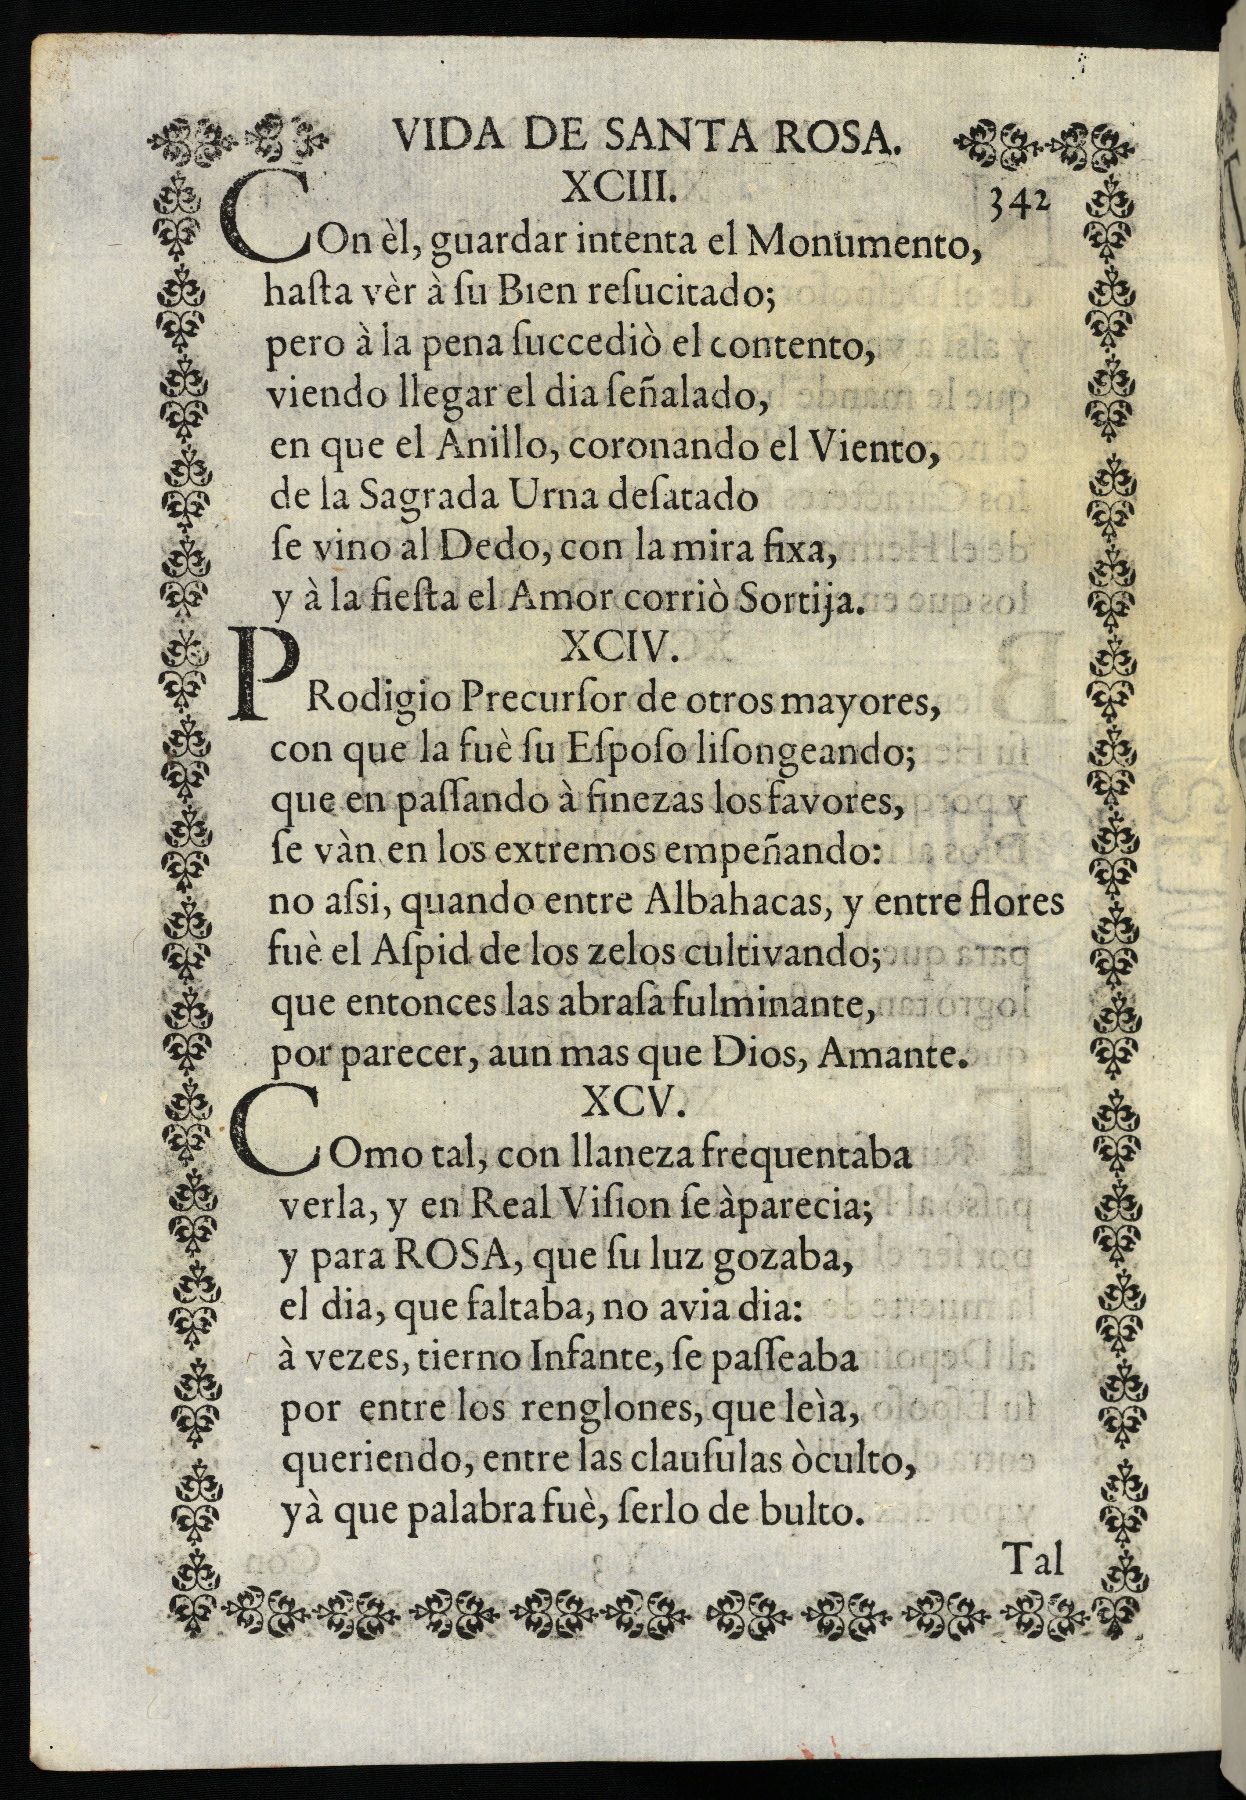 VIDA DE SANTA ROSA.
XCIII.
342
COn èl, guardar intenta el Monumento,
haſta vèr à ſu Bien reſucitado;
pero à la pena ſuccediò el contento,
viendo llegar el dia ſeñalado,
en que el Anillo, coronando el Viento,
de la Sagrada Urna deſatado
ſe vino al Dedo, con la mira fixa,
y à la fieſta el Amor corriò Sortija.
XCIV.
PRodigio Precurſor de otros mayores,
con que la fuè ſu Eſpoſo liſongeando;
que en paſſando à finezas los favores,
ſe vàn en los extremos empeñando:
no aſsi, quando entre Albahacas, y entre flores
fuè el Aſpid de los zelos cultivando;
que entonces las abraſa fulminante,
por parecer, aun mas que Dios, Amante.
XCV.
COmo tal, con llaneza frequentaba
verla, y en Real Viſion ſe àparecia;
y para ROSA, que ſu luz gozaba,
el dia, que faltaba, no avia dia:
à vezes, tierno Infante, ſe paſſeaba
por entre los renglones, que leìa,
queriendo, entre las clauſulas òculto,
yà que palabra fuè, ſerlo de bulto.
Tal